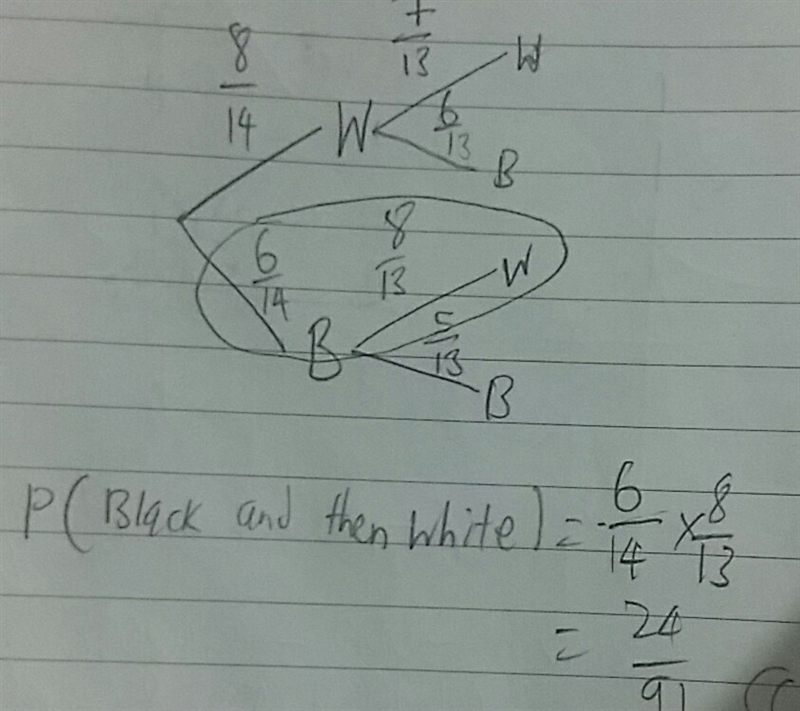 7/13
8/14 W
W 6/13
B
6/14 8/13 W
B 5/13
B
P(Black and then white) = 6/14 × 8/13
= 24/91